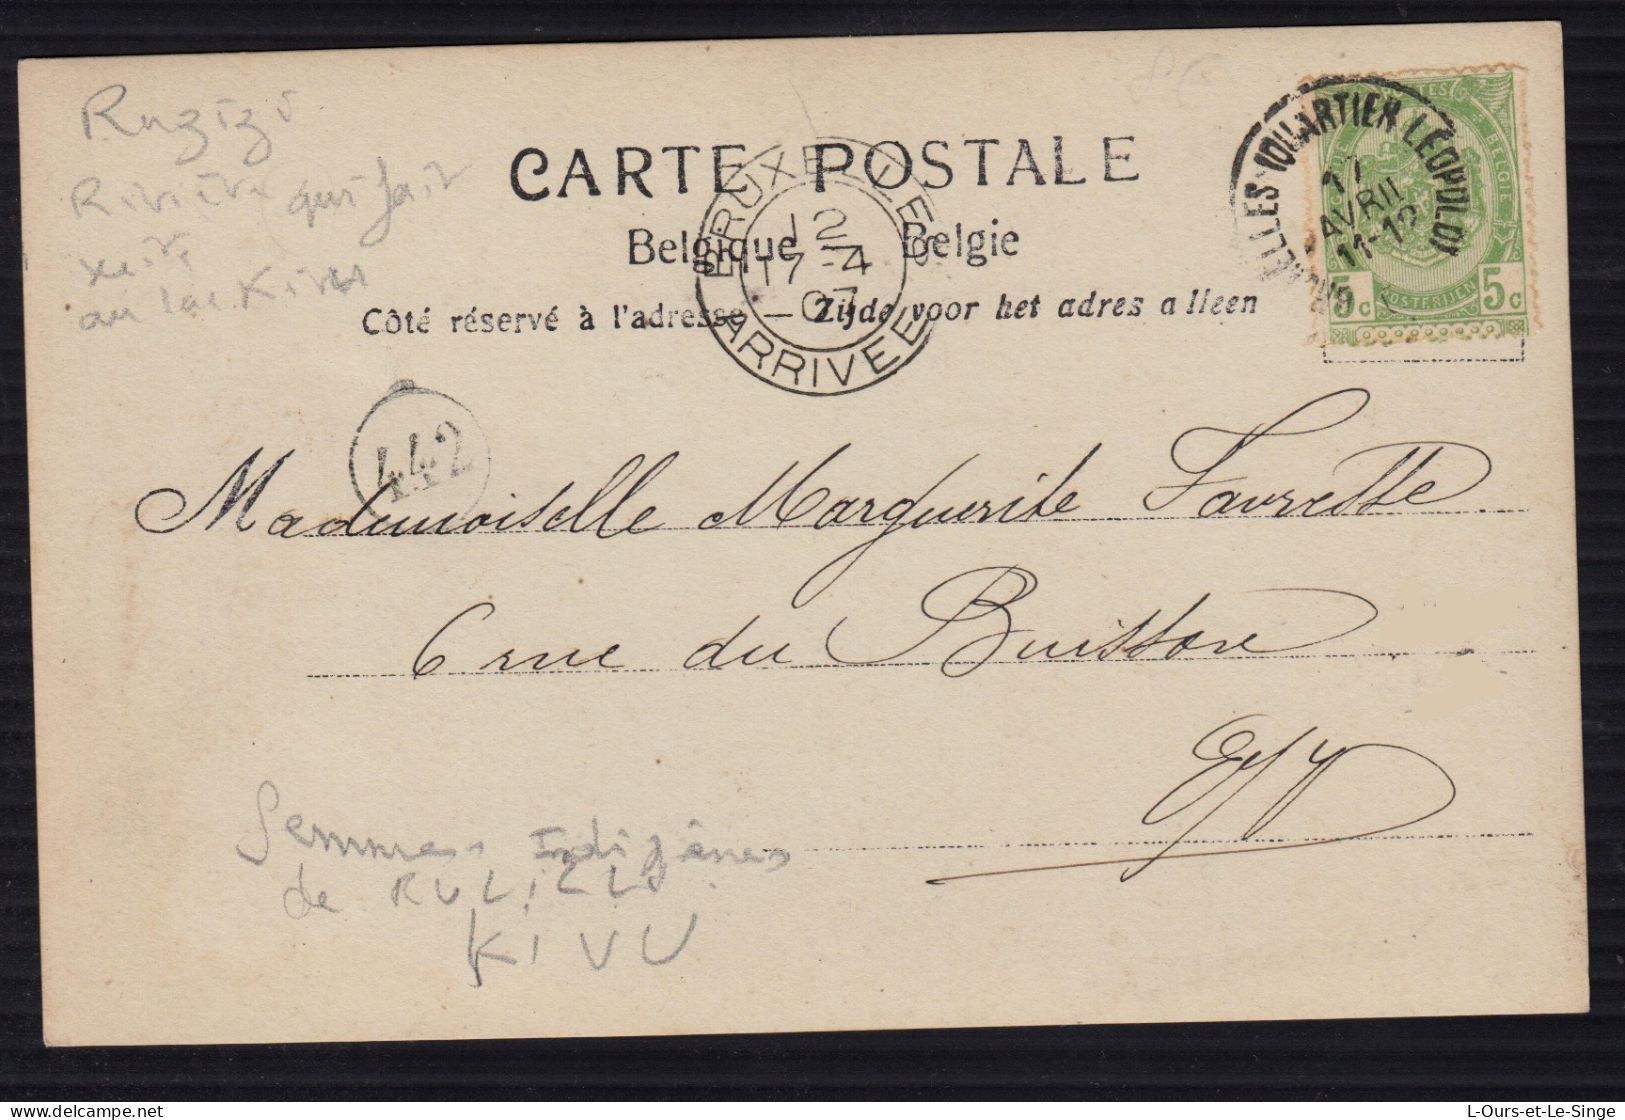 Ruzizi
Rivière qui fait
au lac Kivu
CARTE POSTALE
Belgique — Belgie
Côté réservé à l'adresse — Zijde voor het adres alleen
BRUXELLES
12
17-4
07
ARRIVEE
BRUXELLES (QUARTIER LÉOPOLD)
17
AVRIL
11-12
POSTES
BELGIE
POSTERIJEN
5c 5c
442
Mademoiselle Marguerite Favrette
6 rue du Buisson
E/V
femmes Indigènes
de
KIVU
L-Ours-et-Le-Singe